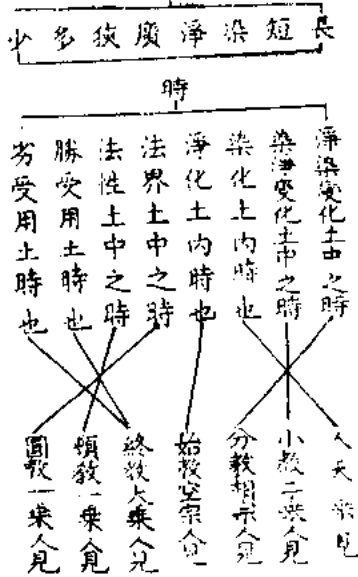 長短染淨廣狹多少
時
淨染變化土中之時
染淨變化土中之時
染化土内時也
淨化土内時也
法界土中之時
法性土中之時
勝受用土時也
劣受用土時也
人天乘見
小教二乘人見
分教相宗人見
始教空宗人見
終教大乘人見
頓教一乘人見
圓教一乘人見